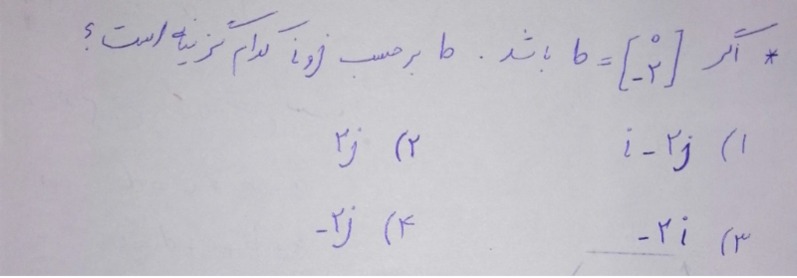 * اگر b = [۰ -۲] باشد . b برحسب i و j کدام گزینه است ؟
۱) i - ۲j ۲) ۲j
۳) -۲i ۴) -۲j